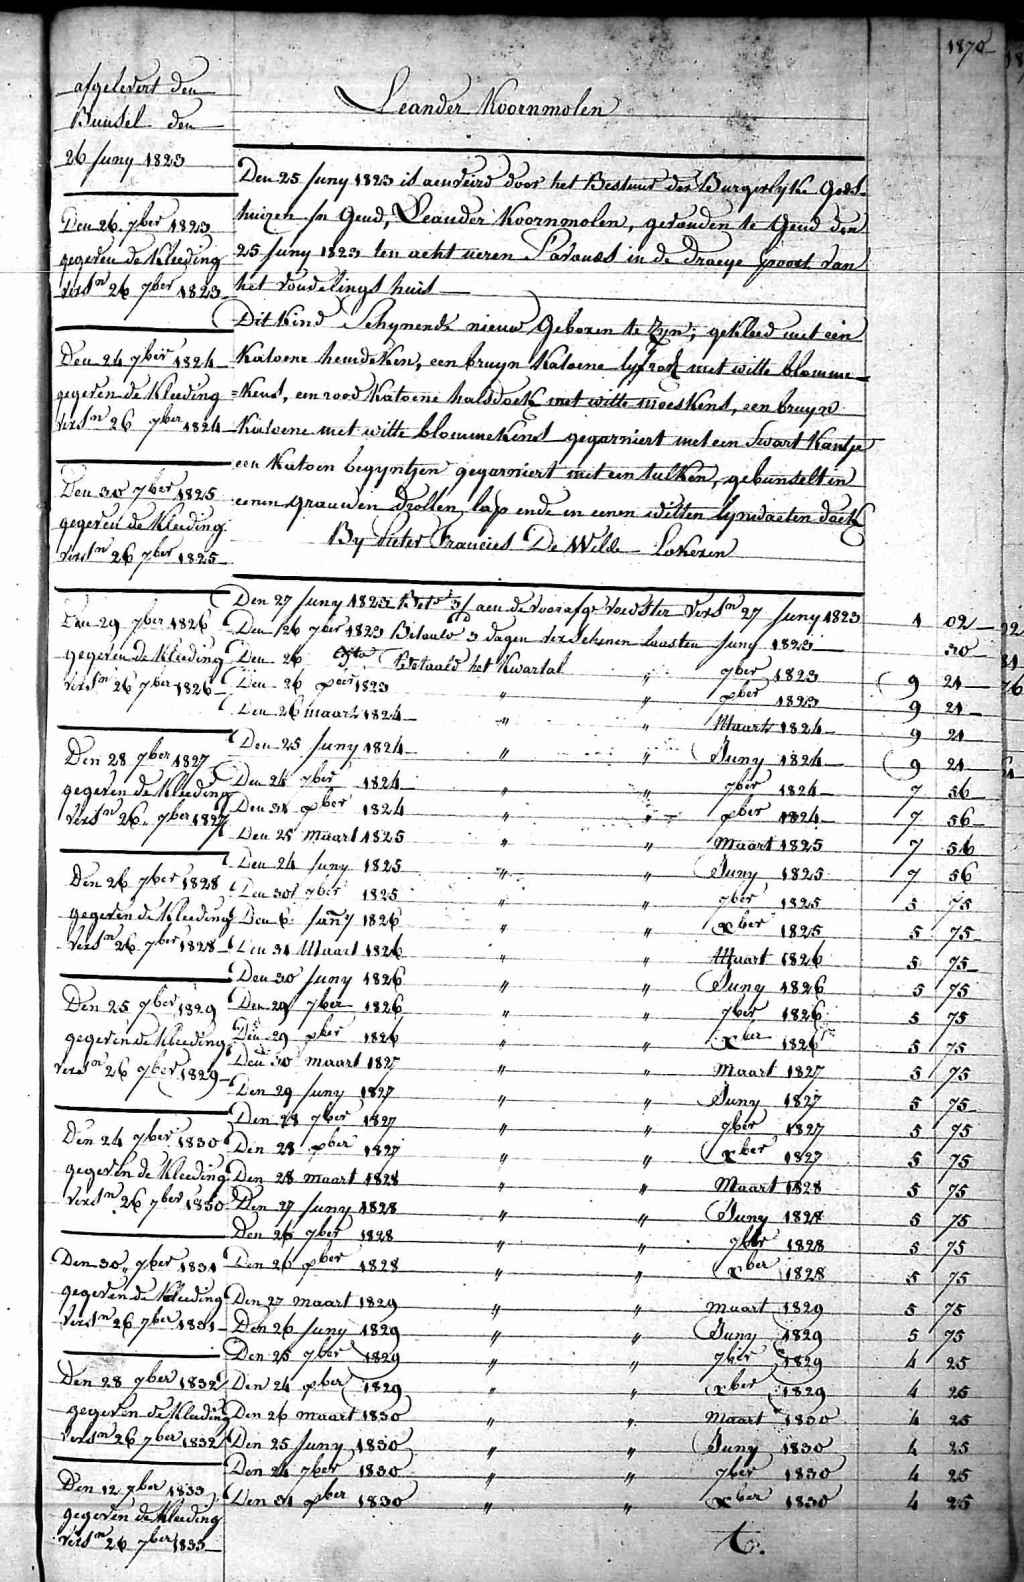 1870
afgelevert den
Bunsel den
26 Juny 1823
Leander Koornmolen
Den 25 Juny 1823 is aenveird door het Bestuur der Burgerlyke Gods-
huizen in Gend, Leander Koornmolen, gevonden te Gend den
25 Juny 1823 ten acht uren s'avonds in de Draeye poort van
het vondelings huis
Dit Kind Schynende nieuw Geboren te Zyn; gekleed met een
Katoene hemdeken, een bruyn Katoene lyfrok met witte blomme-
=kens, een rood Katoene halsdoek met witte moeskens, een bruyn
Katoene met witte blommekens gegarniert met een Swart Kantje
een Katoen begyntjen gegarniert met een tulken, gebunselt in
eenen grauwen Drollen lap ende in eenen witten lynwaeten doek
By Pieter Francies De Wilde Lokeren
Den 26 7ber 1823
gegeven de Kleeding
versn 26 7ber 1823
Den 24 7ber 1824
gegeven de Kleeding
versn 26 7ber 1824
Den 30 7ber 1825
gegeven de Kleeding
versn 26 7ber 1825
Den 29 7ber 1826
gegeven de Kleeding
versn 26 7ber 1826
Den 28 7ber 1827
gegeven de Kleeding
versn 26 7ber 1827
Den 26 7ber 1828
gegeven de Kleeding
versn 26 7ber 1828
Den 25 7ber 1829
gegeven de Kleeding
versn 26 7ber 1829
Den 24 7ber 1830
gegeven de Kleeding
versn 26 7ber 1830
Den 30 7ber 1831
gegeven de Kleeding
versn 26 7ber 1831
Den 28 7ber 1832
gegeven de Kleeding
versn 26 7ber 1832
Den 12 7ber 1833
gegeven de Kleeding
versn 26 7ber 1833
Den 27 Juny 1823 aen de voorafge voedster versn 27 Juny 1823 1 02
Den 26 7ber 1823 Betaelt 3 dagen verschenen laasten Juny 1823 30
Den 26 dito Betaald het Kwartal " 7ber 1823 9 21
Den 26 xber 1823 " " xber 1823 9 21
Den 26 maart 1824 " " Maart 1824 9 21
Den 25 Juny 1824 " " Juny 1824 9 21
Den 24 7ber 1824 " " 7ber 1824 7 56
Den 31 xber 1824 " " xber 1824 7 56
Den 25 maart 1825 " " Maart 1825 7 56
Den 24 Juny 1825 " " Juny 1825 7 56
Den 30 7ber 1825 " " 7ber 1825 5 75
Den 6 Jany 1826 " " xber 1825 5 75
Den 31 Maart 1826 " " Maart 1826 5 75
Den 30 Juny 1826 " " Juny 1826 5 75
Den 29 7ber 1826 " " 7ber 1826 5 75
Den 29 xber 1826 " " xber 1826 5 75
Den 30 maart 1827 " " Maart 1827 5 75
Den 29 Juny 1827 " " Juny 1827 5 75
Den 28 7ber 1827 " " 7ber 1827 5 75
Den 28 xber 1827 " " xber 1827 5 75
Den 28 maart 1828 " " Maart 1828 5 75
Den 27 Juny 1828 " " Juny 1828 5 75
Den 26 7ber 1828 " " 7ber 1828 5 75
Den 26 xber 1828 " " xber 1828 5 75
Den 27 maart 1829 " " Maart 1829 5 75
Den 26 Juny 1829 " " Juny 1829 5 75
Den 25 7ber 1829 " " 7ber 1829 4 25
Den 24 xber 1829 " " xber 1829 4 25
Den 26 maart 1830 " " Maart 1830 4 25
Den 25 Juny 1830 " " Juny 1830 4 25
Den 24 7ber 1830 " " 7ber 1830 4 25
Den 31 xber 1830 " " xber 1830 4 25